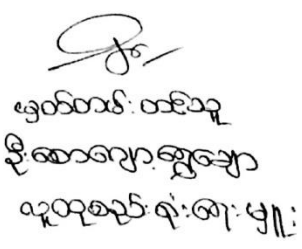 မှတ်တမ်းတင်သူ
ဦးစောကျော့ရွှေချော
လူထုစည်းရုံးရေးမှူး